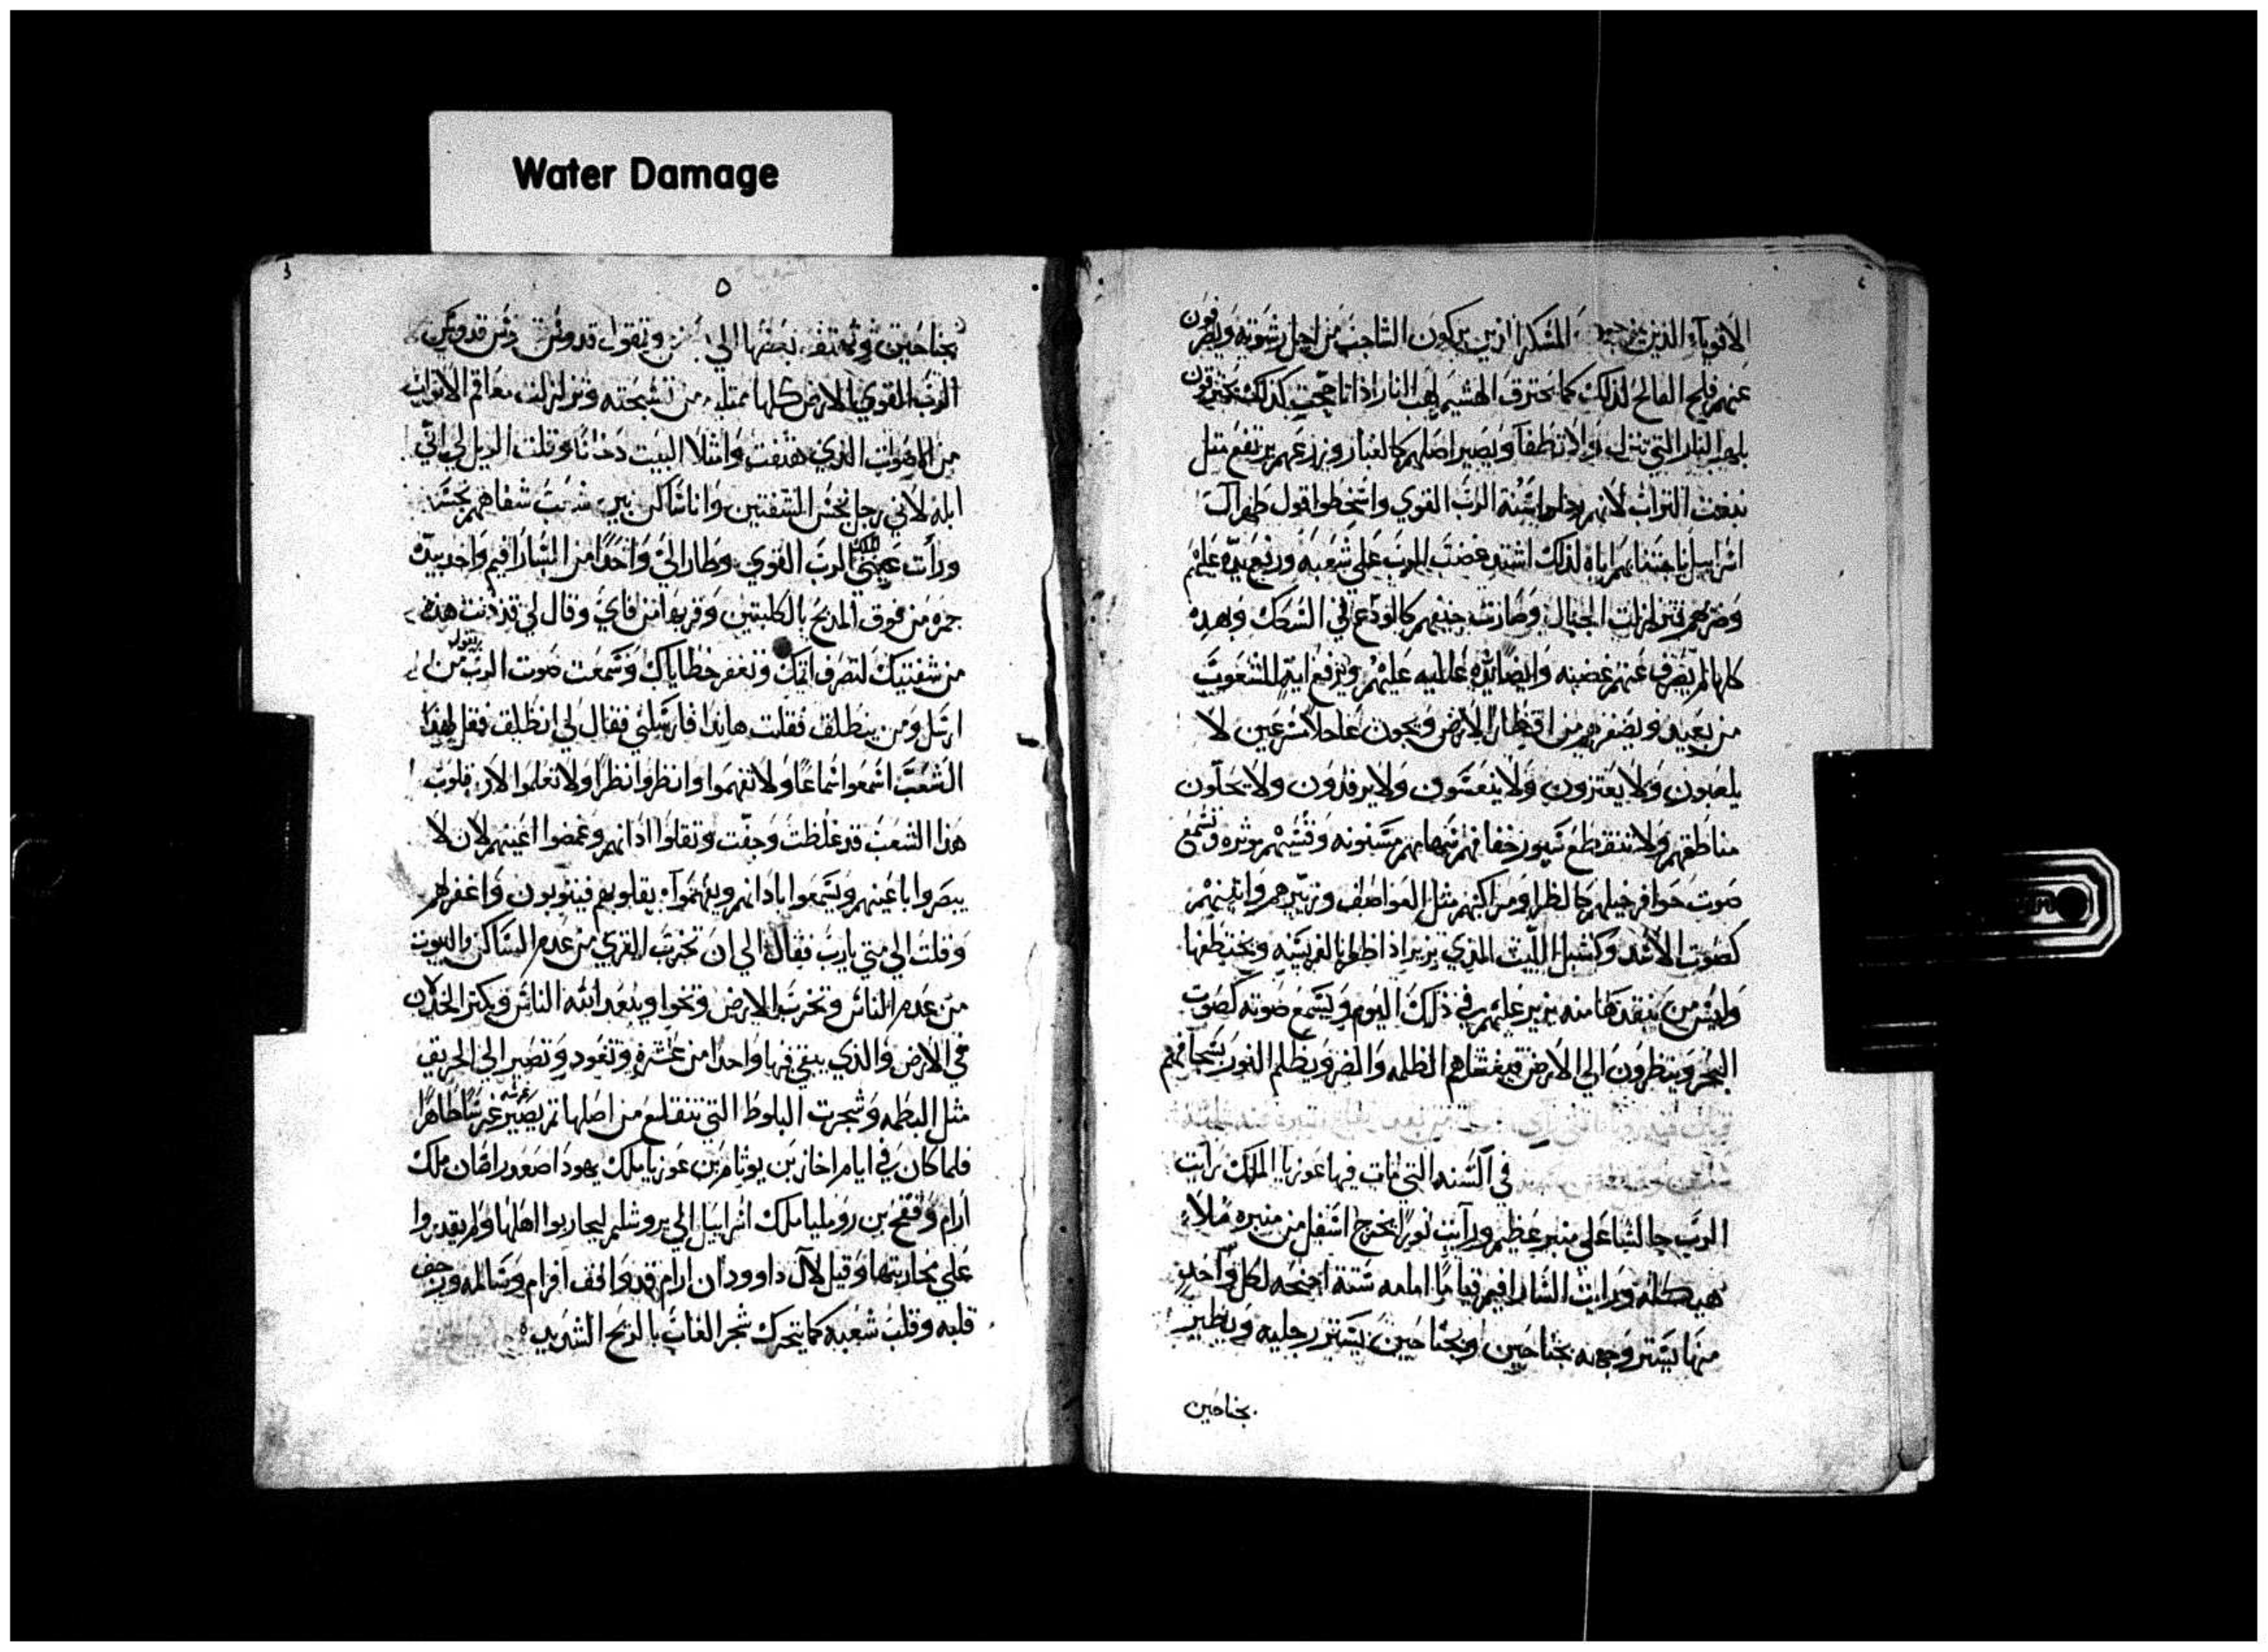 Water Damage
الاقوياء الذين المسكر الذين يزكون الشاجب من اجل رشوته ويصرفون
عنهم فلج الفالج لذلك كما يحترق الهشيم لهب النار اذا تاججت كذلك يحترقون
بلهب النار التي تنزل ولا تطفا ويصير اصلهم كالغبار وزرعهم يرتفع مثل
التراب لانهم سنة الرب القوي واسخطوا قول طهر ال
اسراييل لذلك اشتد غضب الرب علي شعبه ورفع يده عليهم
وضربهم تتزلزلت الجبال وصارت جيفهم في السكك وبهده
كلها لم يصرف عنهم غضبه وايضا يده عاليه عليهم ويرفع ايه للشعوب
من بعيد ويصفر بهم من اقطار الارض ويجون عاجلا مسرعين لا
يلعبون ولا يعتزون ولا ينعسون ولا يرقدون ولا يحلون
مناطقهم ولا تنقطع سيور خفافهم سهامهم مسنونه وقسيهم موتره وتسمع
صوت حوافر خيلهم كالظر ومراكبهم مثل العواصف وزييرهم
كصوت الاسد وكشبل الليث الذي يزير اذا اظفر بالفريسه ويختطفها
وليس من ينقدها منه يزير عليهم في ذلك اليوم ويسمع صوته كصوت
البحر وينظرون الي الارض فيغشاهم الظلمه والضر ويظلم النور
في السنه التي مات فيها عوزيا الملك رايت
الرب جالسا علي منبر عظيم ورايت نورا يخرج اسفل من منبره ملاء
هيكله ورايت السارافيم قياما امامه ستة اجنحه لكل واحد
منها يستر وجهه بجناحين وبجناحين يستر رجليه ويطير
بجناحين
٥
بجناحين ويهتف بعضها الي وتقول قدوس قدوس
الرب القوي الارض كلها ممتليه من تسبحته وتزلزلت معاقم الابواب
من الاصوات الذي هتفت وامتلا البيت دخانا وقلت الويل لي اني
ابله لاني رجل نجس الشفتين وانا ساكن بين شعب شفاههم نجسه
ورات عيني الملك الرب القوي وطار الي واحدا من السارافيم واخد بيده
جمره من فوق المدبح بالكلبتين وقربها من فاي وقال لي قد دنت هده
من شفتيك لتصرف اتمك وتغفر خطاياك وسمعت صوت الرب يقول من
ارسل ومن ينطلق فقلت هاندا فارسلني فقال لي انطلق فقل لهذا
الشعب اسمعوا سماعا ولا تفهموا وانظروا نظرا ولا تعلموا لان قلوب
هذا الشعب قد غلظت وجفت وتقلوا ادانهم وغمضوا اعينهم لان لا
يبصروا باعينهم ويسمعوا بادانهم ويفهموا بقلوبهم فيتوبون واغفر لهم
وقلت الي متي يارب فقال الي ان تخرب القري من عدم الساكن والبيوت
من عدم الناس وتخرب الارض وتخوا ويبعد الله الناس ويكثر الخدلان
في الارض والذي يبقي فيها واحدا من عشره وتعود وتصير الي الحريق
مثل البطمه وشجرت البلوط التي تنقلع من اصلها ثم يصير غرسه غرسا طاهرا
فلما كان في ايام اخاز بن يوثام بن عوزيا ملك يهودا صعد راصان ملك
ارام وفقح بن روميليا ملك اسراييل الي يروشليم ليحاربوا اهلها ولم يقدروا
علي محاربتها وقيل لال داوود ان ارام قد وافق افرام وسالمه ورجف
قلبه وقلب شعبه كما يتحرك شجر الغاب بالريح الشديد